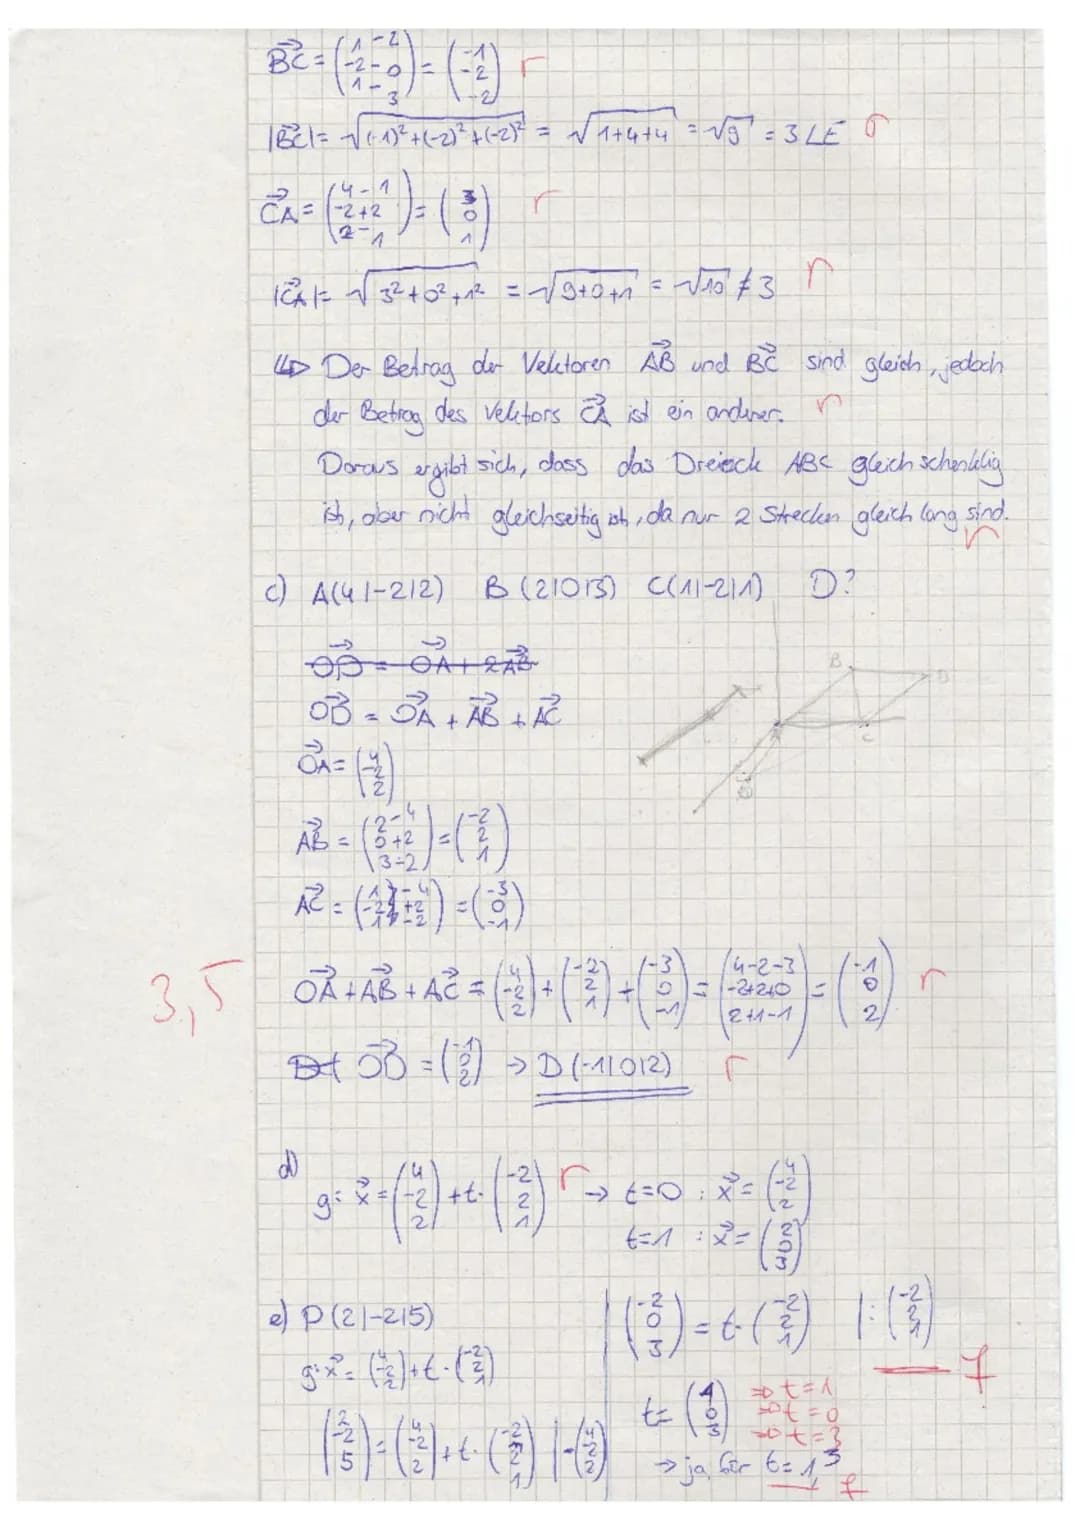 BC⃗ = (1-2 / -2-0 / 1-3) = (-1 / -2 / -2) r
|BC⃗| = √((-1)²+(-2)²+(-2)²) = √(1+4+4) = √9 = 3 LE r
CA⃗ = (4-1 / -2+2 / 2-1) = (3 / 0 / 1) r
|CA⃗| = √(3²+0²+1²) = √(9+0+1) = √10 ≠ 3 r
↳ Der Betrag der Vektoren AB⃗ und BC⃗ sind gleich, jedoch
der Betrag des Vektors CA⃗ ist ein anderer. r
Daraus ergibt sich, dass das Dreieck ABC gleichschenklig
ist, aber nicht gleichseitig ist, da nur 2 Strecken gleich lang sind. r
c) A(4|-2|2) B(2|0|3) C(1|-2|1) D?
OD⃗ = OA⃗ + 2AB⃗
OD⃗ = OA⃗ + AB⃗ + AC⃗
B D A C
OA⃗ = (4 / -2 / 2)
AB⃗ = (2-4 / 0+2 / 3-2) = (-2 / 2 / 1)
AC⃗ = (1-4 / -2+2 / 1-2) = (-3 / 0 / -1)
3,5
OA⃗ + AB⃗ + AC⃗ = (4 / -2 / 2) + (-2 / 2 / 1) + (-3 / 0 / -1) = (4-2-3 / -2+2+0 / 2+1-1) = (-1 / 0 / 2) r
D( OD⃗ = (-1 / 0 / 2) → D(-1|0|2) r
d)
g: x⃗ = (4 / -2 / 2) + t·(-2 / 2 / 1) r → t=0 : x⃗ = (4 / -2 / 2)
t=1 : x⃗ = (2 / 0 / 3)
e) P(2|-2|5)
g: x⃗ = (4 / -2 / 2) + t·(-2 / 2 / 1)
(2 / -2 / 5) = (4 / -2 / 2) + t·(-2 / 2 / 1) |-(4 / -2 / 2)
(-2 / 0 / 3) = t·(-2 / 2 / 1) |:(-2 / 2 / 1) f
t = (1 / 0 / 3) ⇒ t=1
⇒ t=0
⇒ t=3
→ ja, für t=1,3 f